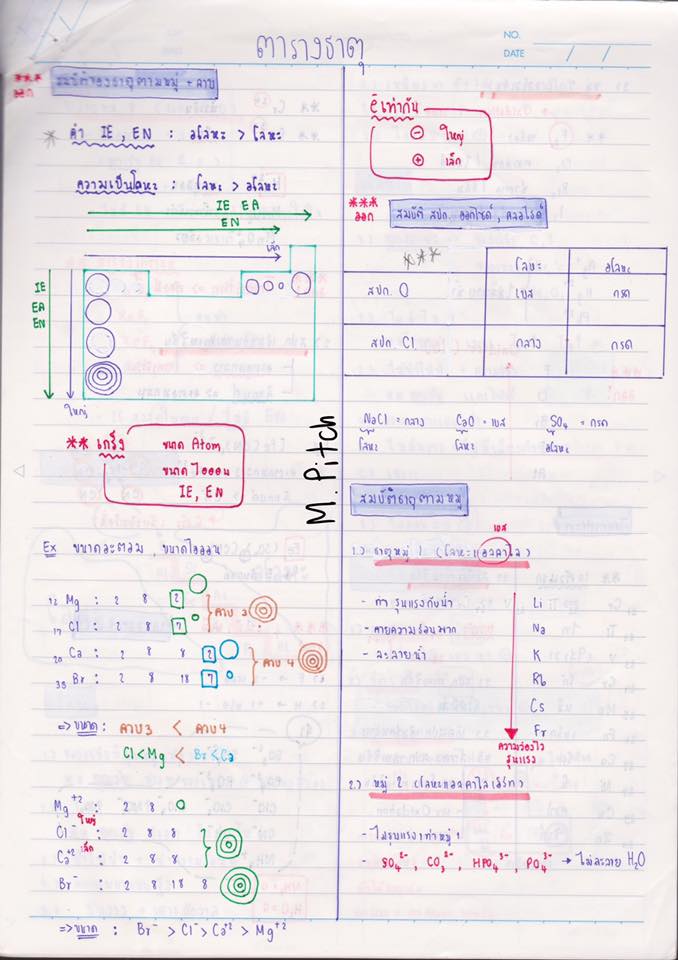 NO.
DATE / /
ตารางธาตุ
*** ออก
สมบัติของธาตุตามหมู่ + คาบ
* ค่า IE, EN : อโลหะ > โลหะ
ความเป็นโลหะ : โลหะ > อโลหะ
IE EA
EN
เล็ก
IE
EA
EN
ใหญ่
** เกร็ง
ขนาด Atom
ขนาดไอออน
IE, EN
Ex ขนาดอะตอม, ขนาดไอออน
12 Mg : 2 8 2
17 Cl : 2 8 7
คาบ 3
20 Ca : 2 8 8 2
35 Br : 2 8 18 7
คาบ 4
=> ขนาด : คาบ 3 < คาบ 4
Cl < Mg < Br < Ca
Mg+2 : 2 8
ใหญ่
Cl- : 2 8 8
เล็ก
Ca+2 : 2 8 8
Br- : 2 8 18 8
=> ขนาด : Br- > Cl- > Ca+2 > Mg+2
M. Pitch
ē เท่ากัน
⊖ ใหญ่
⊕ เล็ก
*** ออก
สมบัติ สปก. ออกไซด์, คลอไรด์
***
โลหะ อโลหะ
สปก. O เบส กรด
สปก. Cl กลาง กรด
NaCl = กลาง CaO = เบส SO4 = กรด
โลหะ โลหะ อโลหะ
สมบัติธาตุตามหมู่
เบส
1.) ธาตุหมู่ 1 (โลหะแอลคาไล)
- ทำ รุนแรงกับน้ำ
- คายความร้อนมาก
- ละลายน้ำ
Li
Na
K
Rb
Cs
Fr
ความว่องไว
รุนแรง
2.) หมู่ 2 (โลหะแอลคาไลเอิร์ท)
- ไม่รุนแรงเท่าหมู่ 1
- SO4 2-, CO3 2-, HPO4 3-, PO4 3- → ไม่ละลาย H2O